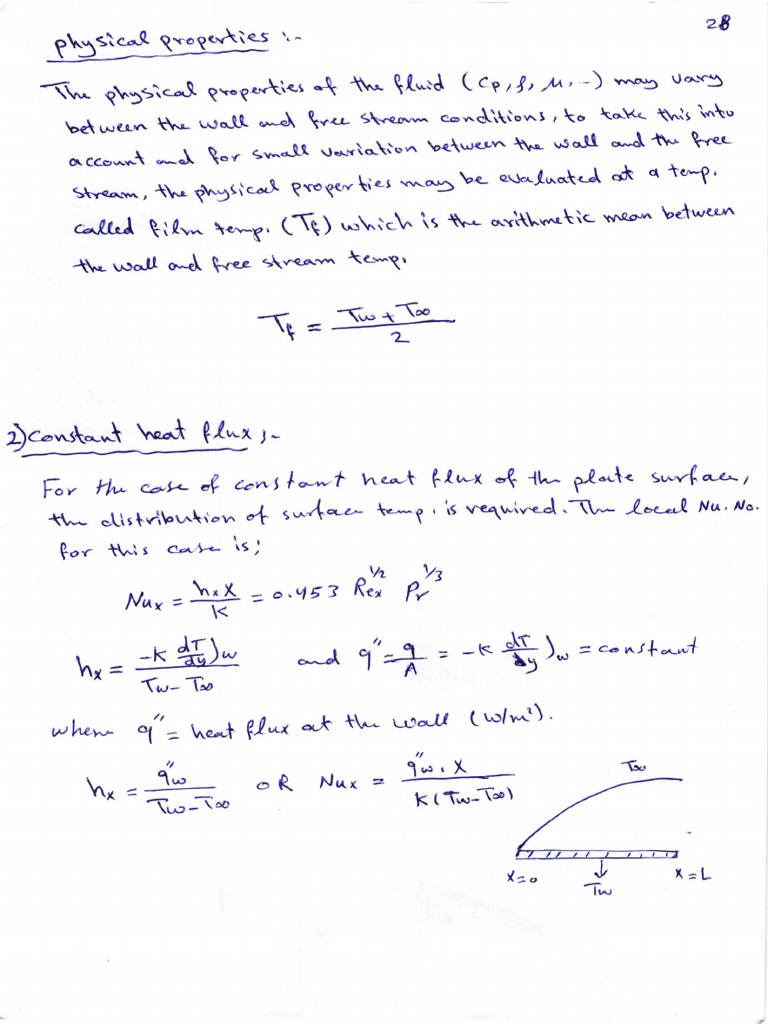 28
physical properties :-
The physical properties of the fluid (Cp, ρ, μ, -) may vary
between the wall and free stream conditions, to take this into
account and for small variation between the wall and the free
stream, the physical properties may be evaluated at a temp.
called film temp. (Tf) which is the arithmetic mean between
the wall and free stream temp.
Tf = (Tw + T∞) / 2
2) constant heat flux :-
For the case of constant heat flux of the plate surface,
the distribution of surface temp. is required. The local Nu. No.
for this case is;
Nux = hx x / K = 0.453 Rex^1/2 Pr^1/3
hx = -K dT/dy)w / (Tw - T∞) and q" = q/A = -K dT/dy)w = constant
where q" = heat flux at the wall (W/m²).
hx = q"w / (Tw - T∞) OR Nux = q"w . x / K(Tw - T∞)
T∞
x=0 Tw x=L